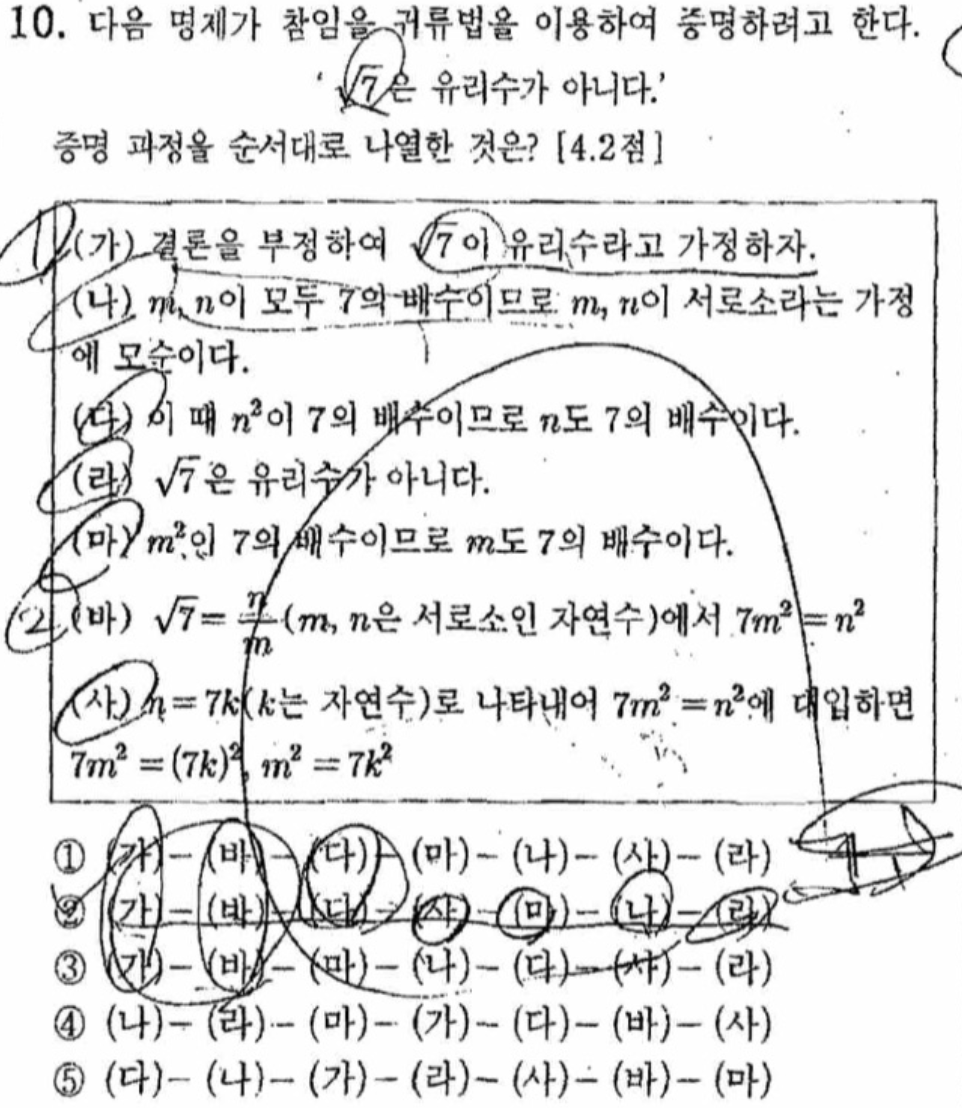 10. 다음 명제가 참임을 귀류법을 이용하여 증명하려고 한다.
'√7은 유리수가 아니다.'
증명 과정을 순서대로 나열한 것은? [4.2점]
1 (가) 결론을 부정하여 √7이 유리수라고 가정하자.
(나) m, n이 모두 7의 배수이므로 m, n이 서로소라는 가정
에 모순이다.
(다) 이 때 n²이 7의 배수이므로 n도 7의 배수이다.
(라) √7은 유리수가 아니다.
(마) m²인 7의 배수이므로 m도 7의 배수이다.
2 (바) √7 = n/m (m, n은 서로소인 자연수)에서 7m² = n²
(사) n = 7k(k는 자연수)로 나타내어 7m² = n²에 대입하면
7m² = (7k)², m² = 7k²
① (가) – (바) – (다) – (마) – (나) – (사) – (라)
② (가) – (바) – (다) – (사) – (마) – (나) – (라)
③ (가) – (바) – (마) – (나) – (다) – (사) – (라)
④ (나) – (라) – (마) – (가) – (다) – (바) – (사)
⑤ (다) – (나) – (가) – (라) – (사) – (바) – (마)